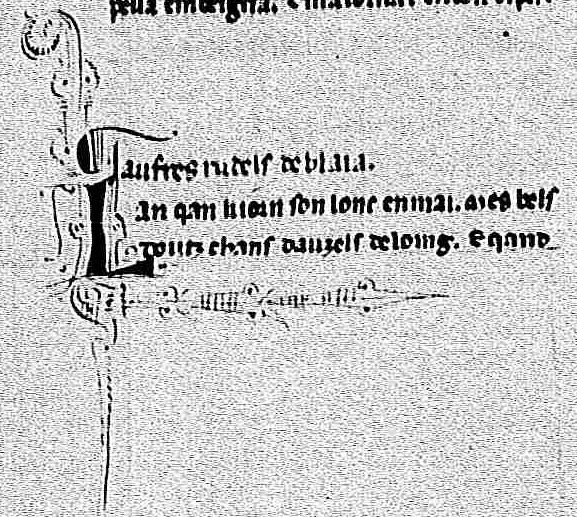 Iaufres rudels deblaia.
Lan qan liiorn son lonc enmai. mes bels
doutz chans dauzels deloing. E qand